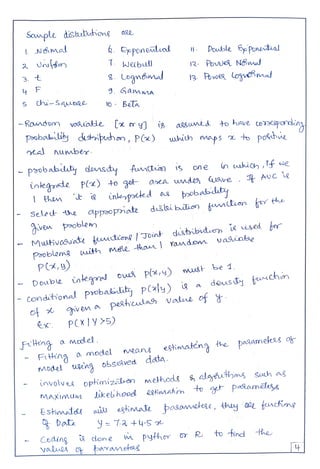 Sample distributions are
1. Normal 6. Exponential 11. Double Exponential
2. Uniform 7. Weibull 12. Power Normal
3. t 8. Lognormal 13. Power Lognormal
4. F 9. Gamma
5. Chi-Square 10. Beta
- Random variable [x or y] is assumed to have corresponding
probability distribution, P(x) which maps x to positive
real number.
- probability density function is one in which, if we
integrate P(x) to get area under curve. If AUC is
1 then it is interpreted as probability
- Select the appropriate distribution function for the
given problem
- Multivariate functions / Joint distribution is used for
problems with more than 1 random variable
P(x,y)
- Double integral over P(x,y) must be 1.
- conditional probability P(x|y) is a density function
of x given a particular value of y.
Ex: P(X|Y>5)
Fitting a model.
- Fitting a model means estimating the parameters of
model using observed data.
- involves optimization methods & algorithms such as
Maximum likelihood estimation to get parameters
- Estimates will estimate parameters, they are functions
of Data y = 7.2 + 4.5x
- Coding is done in python or R to find the
values of parameters
4